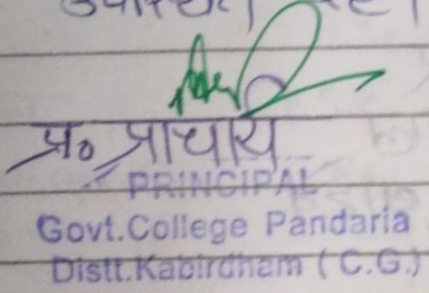 उपस्थित रहे।
प्र० प्राचार्य
PRINCIPAL
Govt.College Pandaria
Distt.Kabirdham (C.G.)